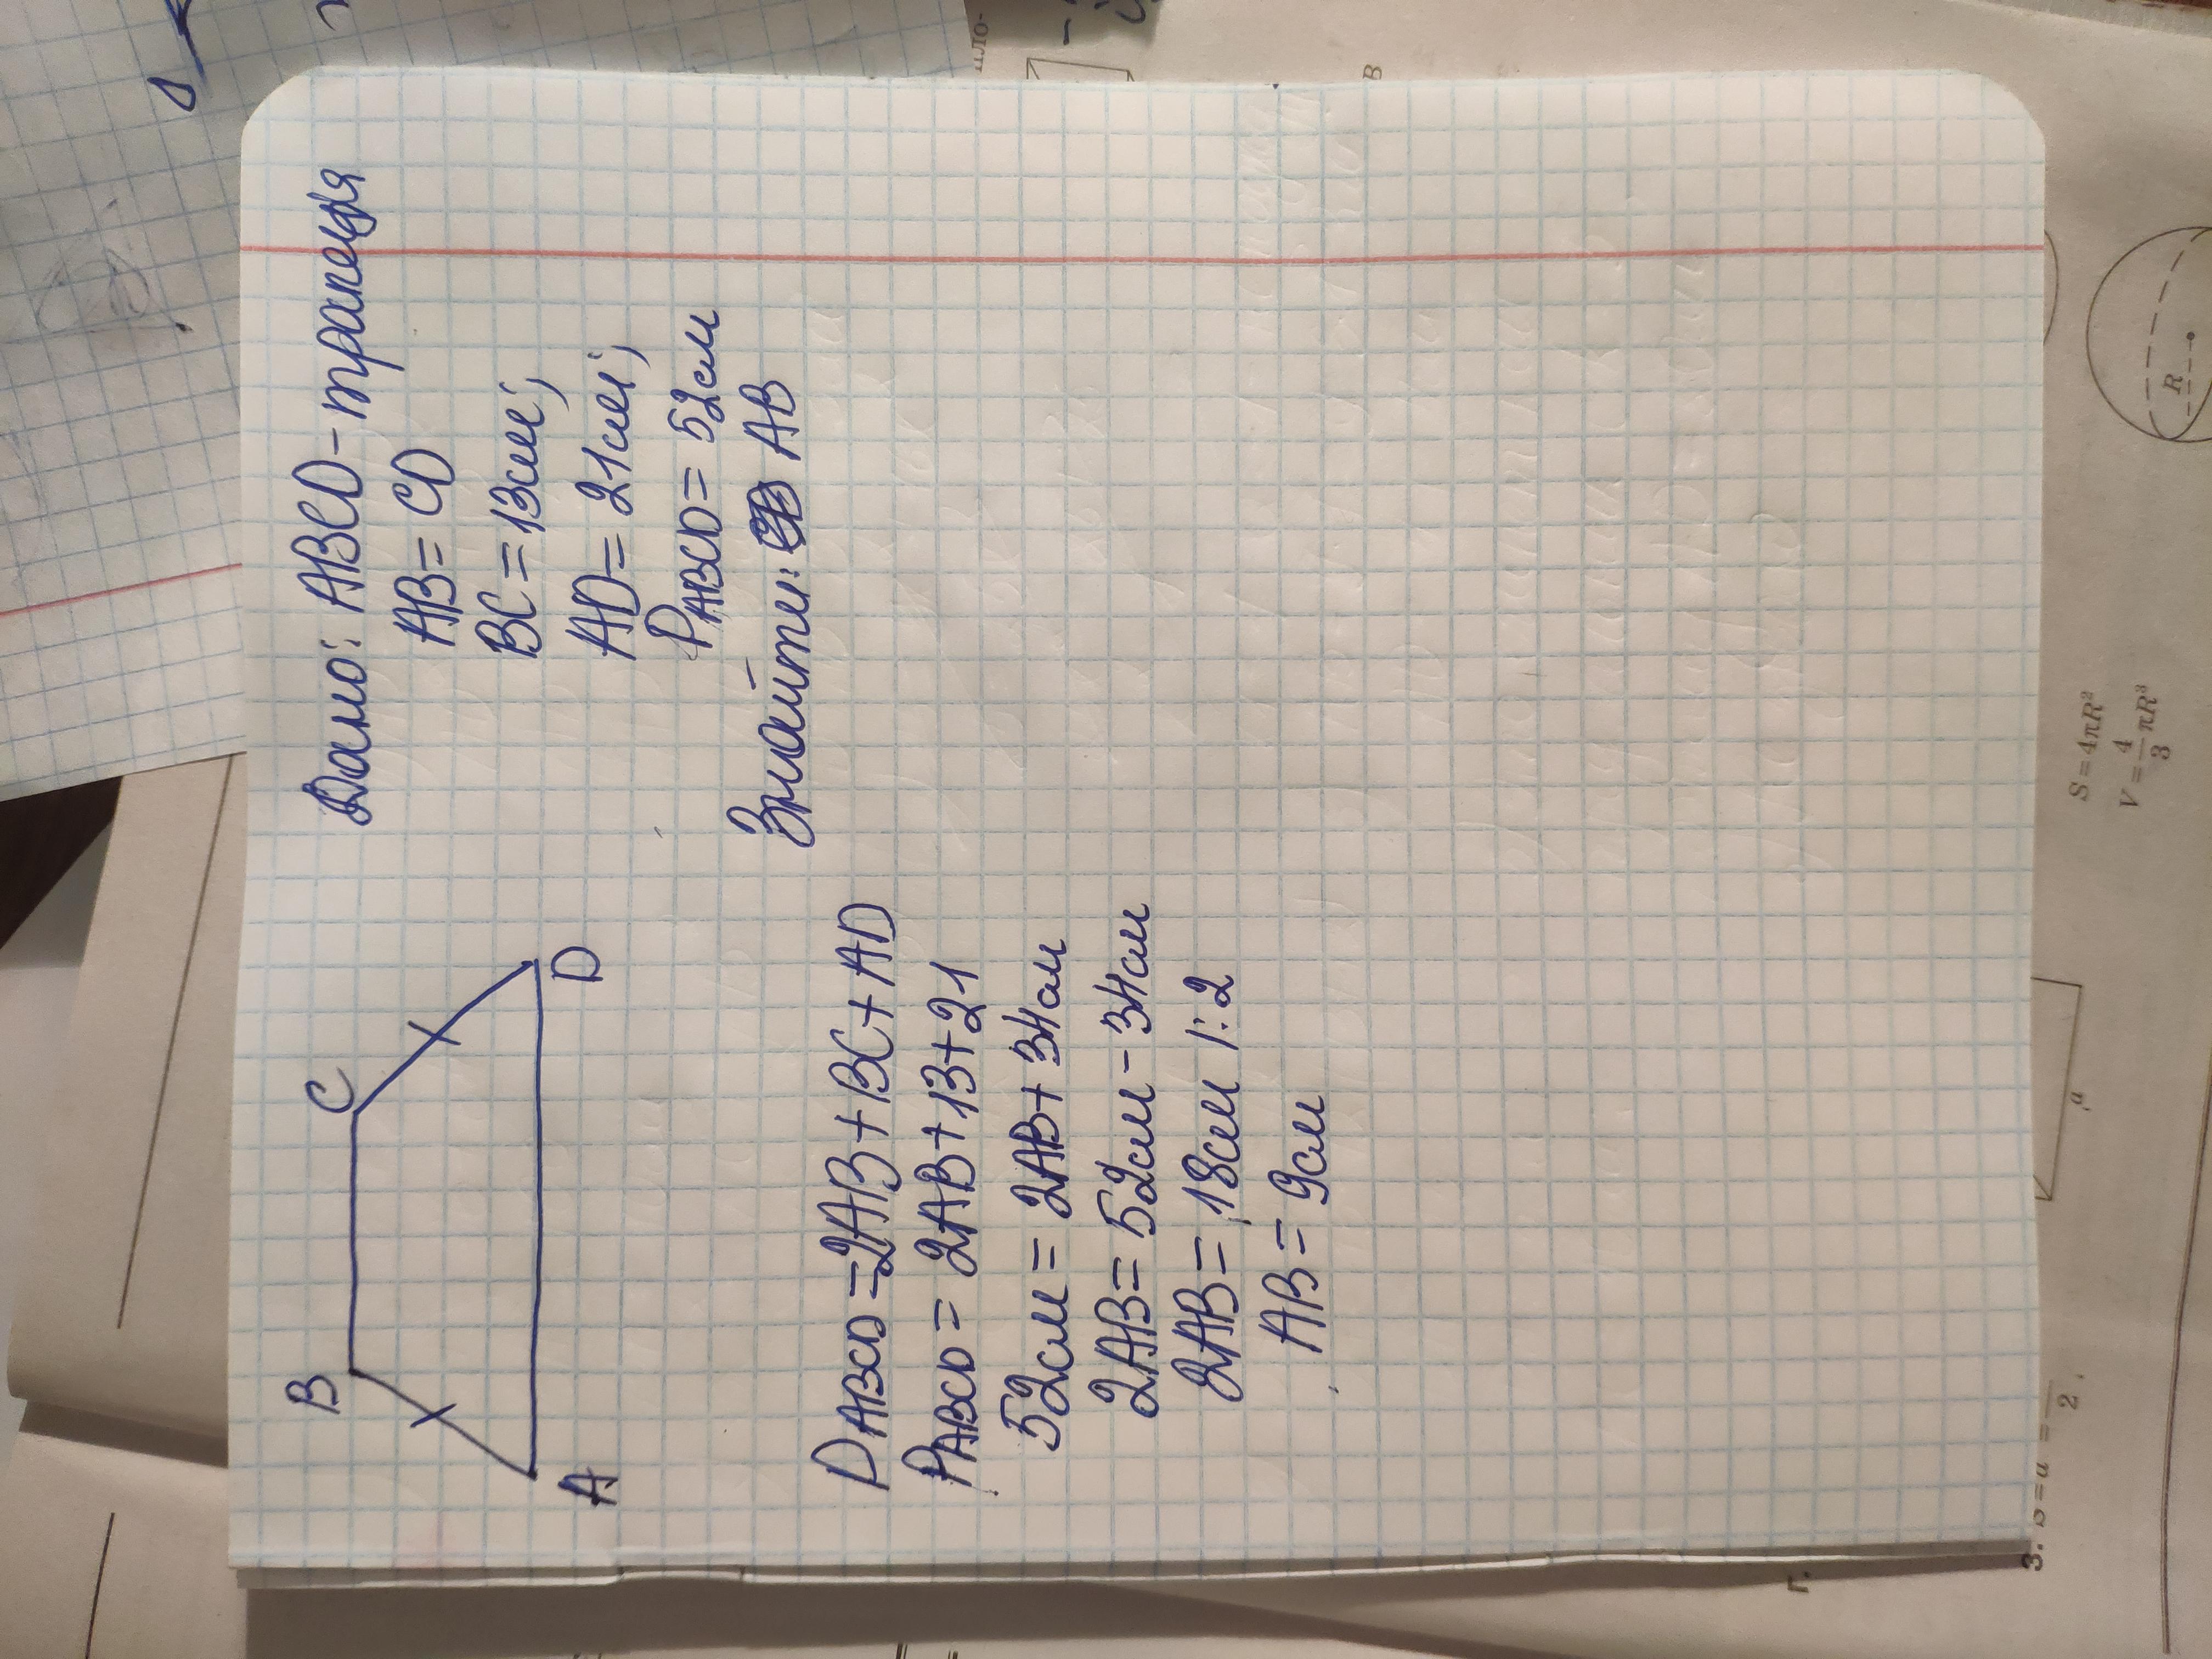 B
C
A
D
Дано: ABCD - трапеція
AB = CD
BC = 13см;
AD = 21см;
PABCD = 52см
Знайти: AB
PABCD = 2AB + BC + AD
PABCD = 2AB + 13 + 21
52см = 2AB + 34см
2AB = 52см - 34см
2AB = 18см |:2
AB = 9см
S = 4πR²
V = 4/3 πR³
R
B
a
г.